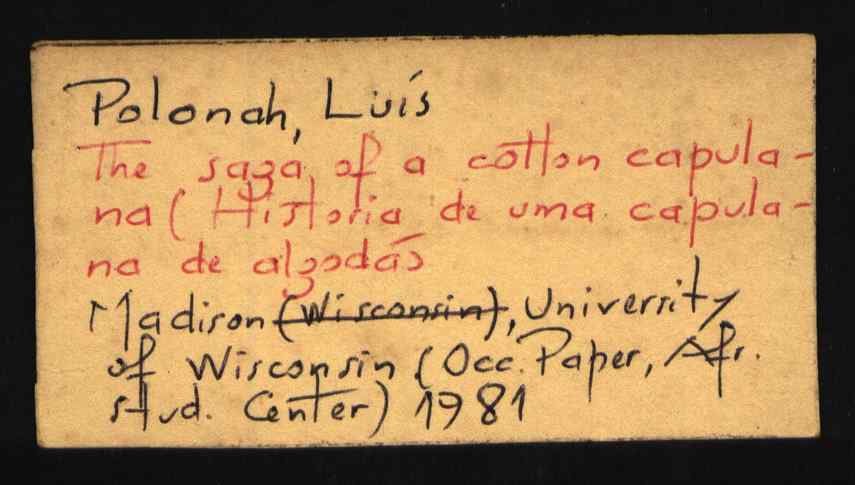 Polonah, Luís
The saga of a cotton capula-
na (Historia de uma capula-
na de algodás
Madison (Wisconsin), University
of Wisconsin (Occ. Paper, Afr.
stud. Center) 1981